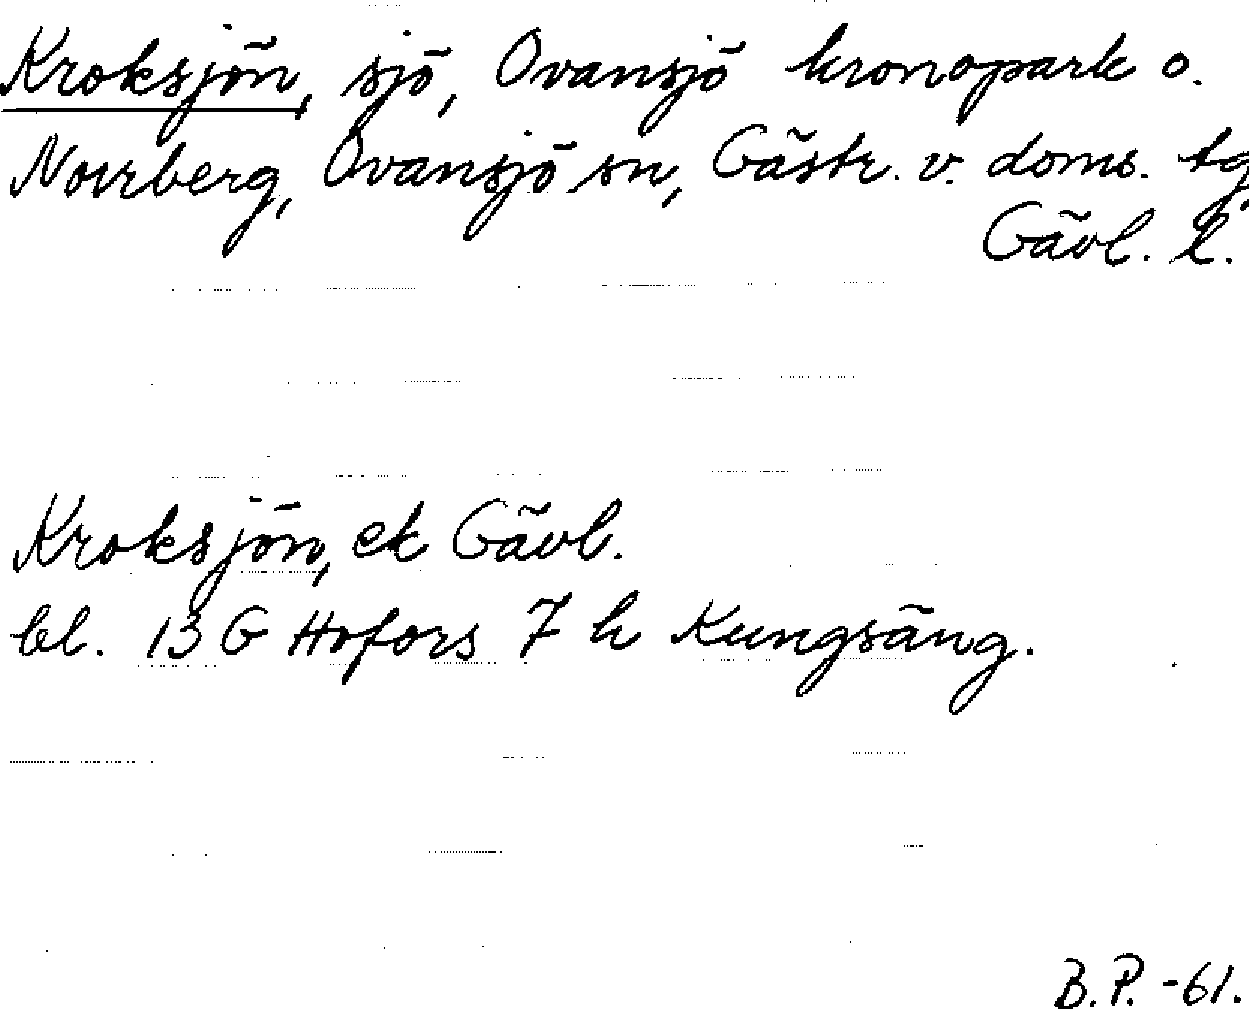 Kroksjön, sjö, Ovansjö kronopark o.
Norrberg, Ovansjö sn, Gästr. v. doms. tg
Gävl. l.
Kroksjön, ek Gävl.
bl. 13 G Hofors 7 h Kungsäng.
B.P. -61.